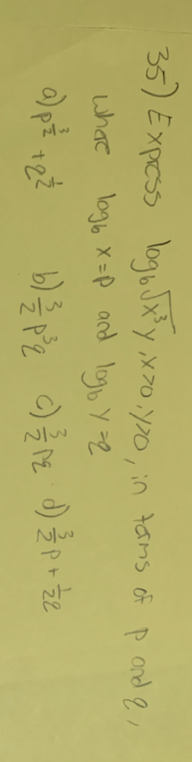 35) Express log₆√x³y, x>0, y>0, in terms of p and q,
where log₆ x = p and log₆ y = q
a) p^3/2 + q^1/2 b) 3/2 p^3 q c) 3/2 pq d) 3/2 p + 1/2 q